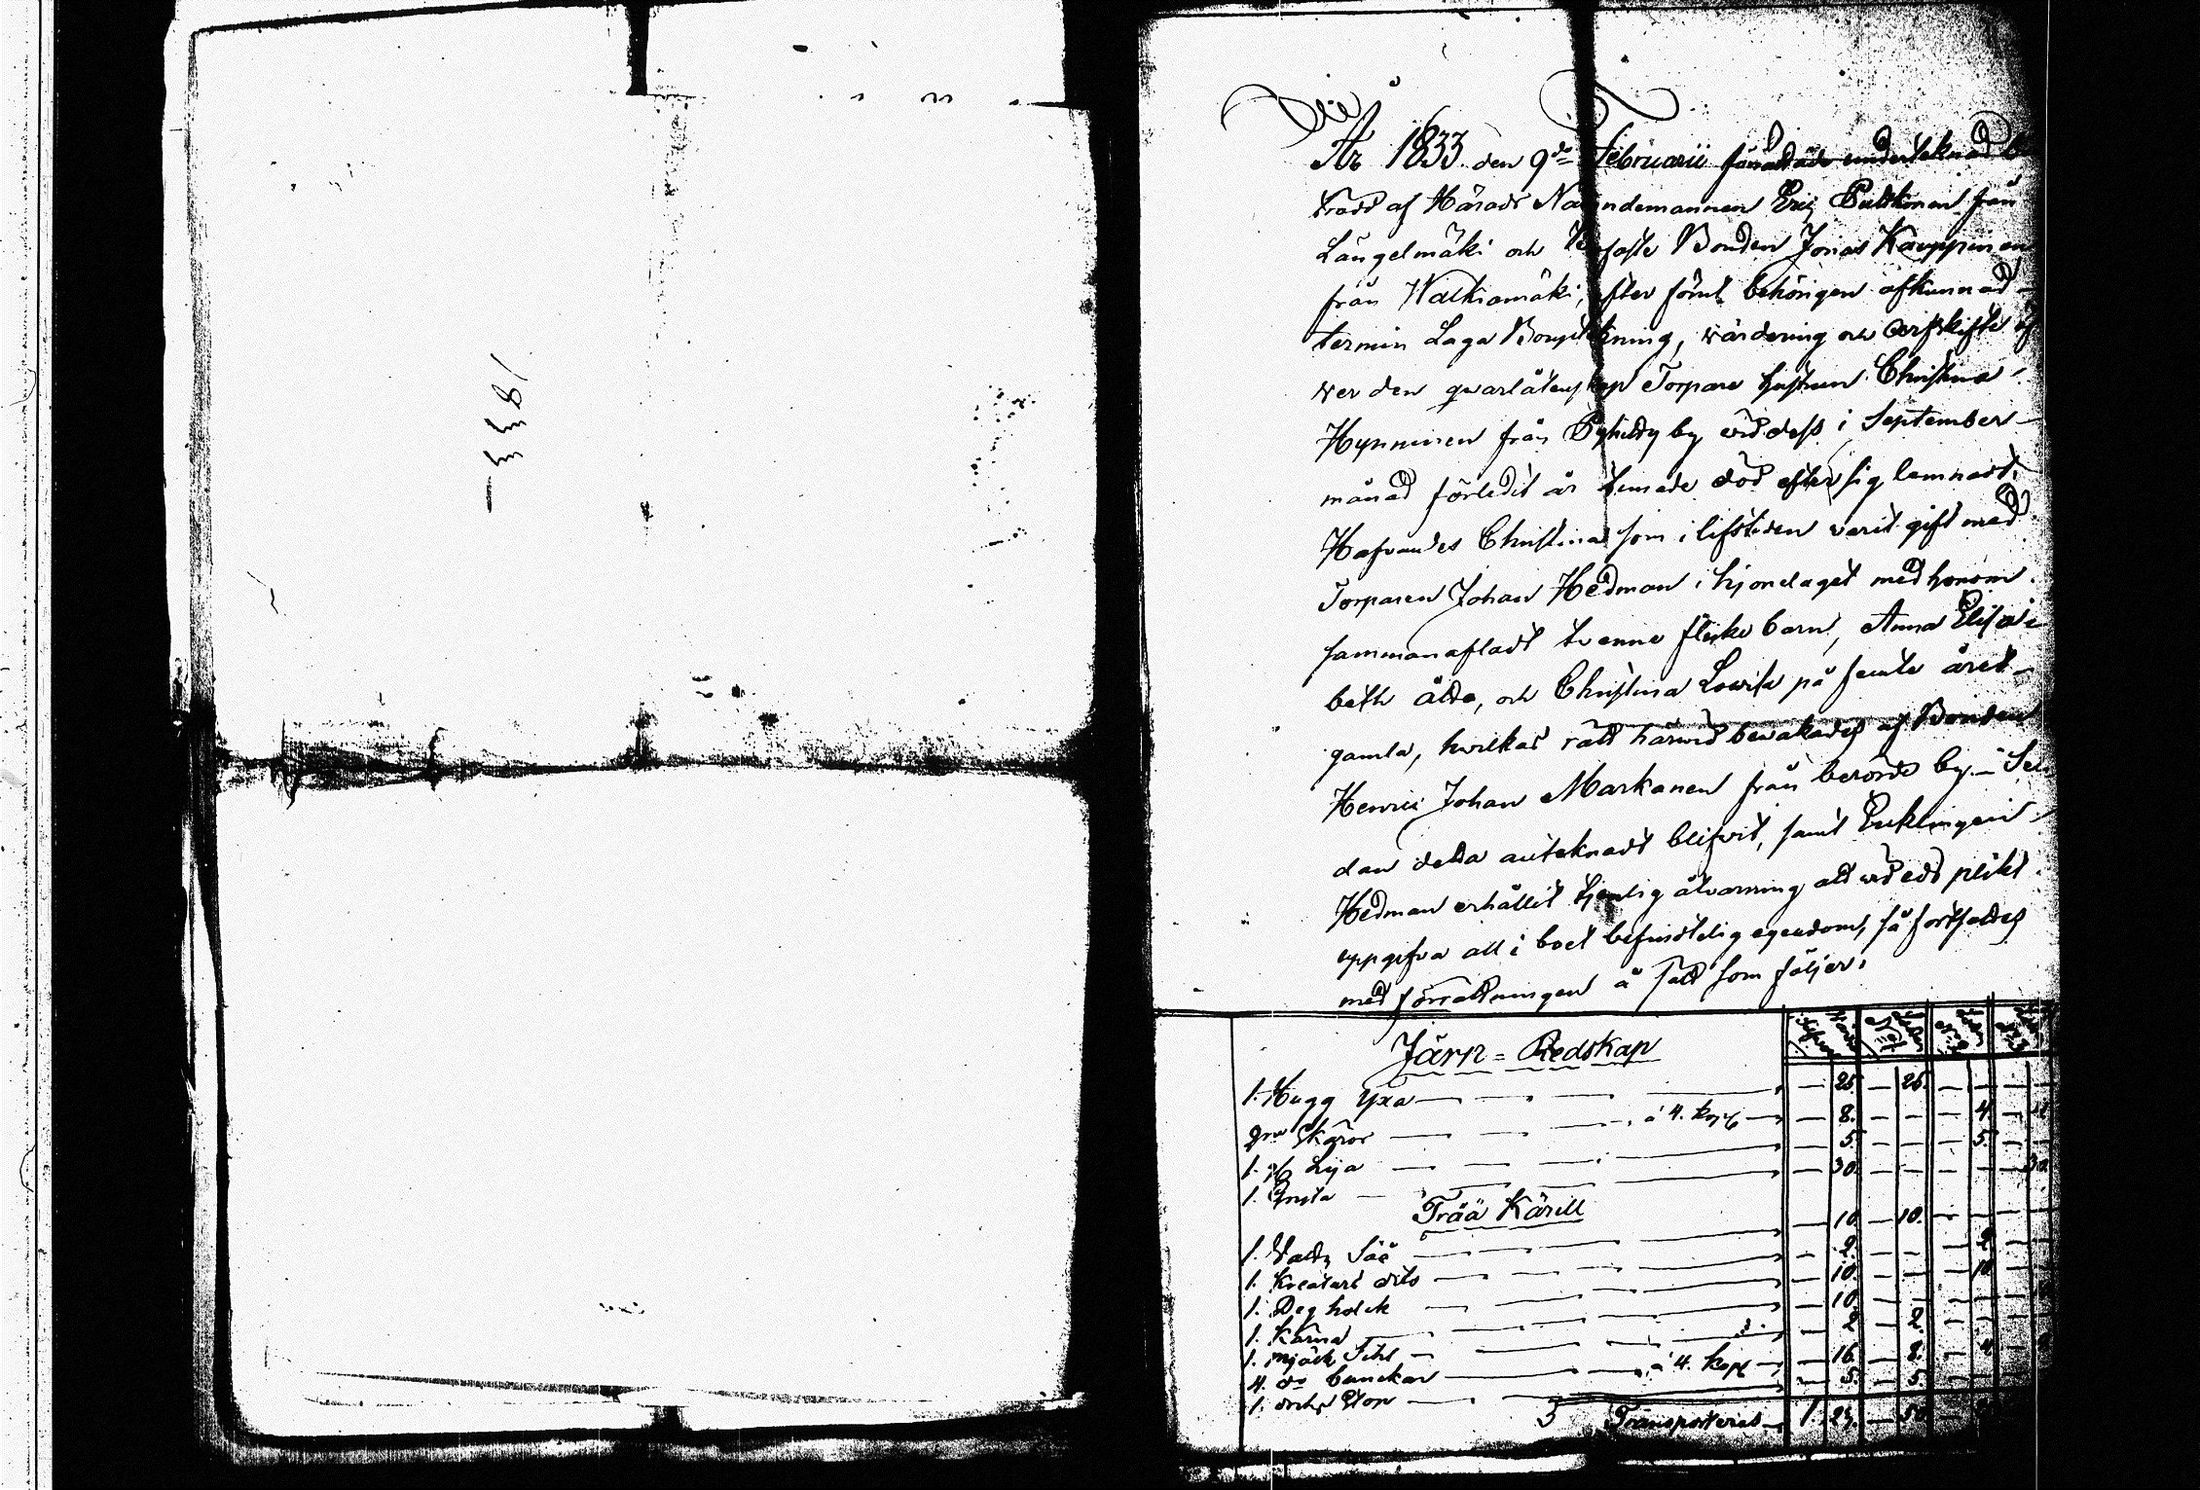 1833
År 1833 den 9de Februarii förrättade underteknad
trädd af Härads Nämndemannen Eric Pulkinen från
Längelmäki och Bonden Jonas Kauppinen
från Walkiamäki, efter förut behörigen afkunnad
termin Laga Boupteckning, värdering och arfskifte öf
ver den qvarlåtenskap Torpare hustrun Christina
Hynninen från by vid dess i September
månad förledit år timade död efter sig lemnadt.
Hafvandes Christina som i lifstiden varit gift med
Torparen Johan Hedman i hjonelaget med honom
sammanafladt tvenne flicke barn, Anna Elisa
beth ålde, och Christina Lovisa på femte året
gamla, hvilkas rätt härvid bevakades af Bonden
Henric Johan Markanen från berörde by. Se
dan detta anteknadt blifvit, samt Enklingen
Hedman erhållit tjenlig åtvarning att vid eds plikt
uppgifva all i boet befindtelig egendom, så fortsattes
med förrättningen å sätt som följer:
Järn-Redskap
1. Hugg Yxa — 25. — 25.
2ne Skäror — á 4. kop — 8. — 4.
1. Lija — 5. — 5.
1. — 30. — 30.
Trää Kärill
1. Så — 10 — 10.
1. Kreaturs dito — 2. — 2
1. Deg holck — 10. — 10
1. Kärna — 10
1. mjölk — 2 — 2.
4. do bunckar — á 4. kop — 16. — 8. — 4
1. Stop — 5. — 5.
Transporteras — 1. 23. — 50